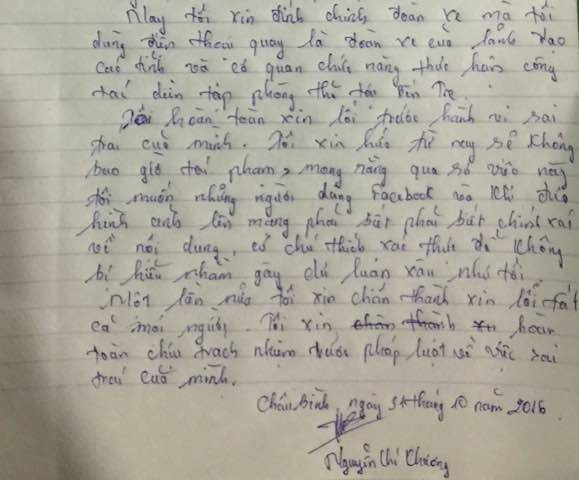 Nay tôi xin đính chính đoàn xe mà tôi
dùng điện thoại quay là đoàn xe của lãnh đạo
các tỉnh và cơ quan chức năng thực hiện công
tác diễn tập phòng thủ tỉnh Bến Tre.
Tôi hoàn toàn xin lỗi trước hành vi sai
trai của mình. Tôi xin hứa từ nay sẽ không
bao giờ tái phạm, mong rằng qua sự việc này
tôi muốn những người dùng Facebook và khi đưa
hình ảnh lên mạng phải biết phải biết chính xác
về nội dung, có chú thích xác thực để không
bị hiểu nhầm gây dư luận xấu như tôi
Một lần nữa tôi xin chân thành xin lỗi tất
cả mọi người. Tôi xin chân thành xin hoàn
toàn chịu trách nhiệm trước pháp luật về việc sai
trai của mình.
Châu Bình, ngày 31 tháng 10 năm 2016
Nguyễn Chí Chương